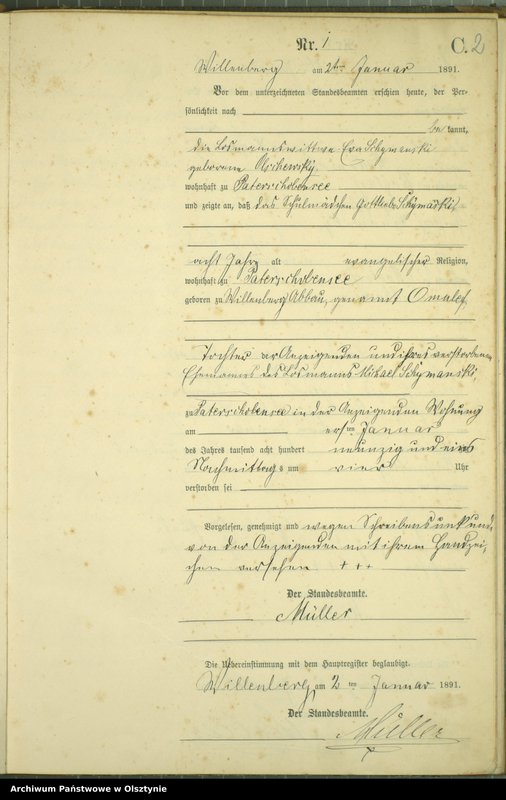 Nr. 1
C. 2
Willenberg am 2ten Januar 1891.
Vor dem unterzeichneten Standesbeamten erschien heute, der Per-
sönlichkeit nach
be kannt,
die Losmannswittwe Eva Schymanski
geborene
wohnhaft zu Paterschobensee
und zeigte an, daß das Schulmädchen Gottliebe Schymanski,
acht Jahr alt evangelischer Religion,
wohnhaft zu Paterschobensee
geboren zu Willenberg Abbau, genannt Omulef,
Tochter der Anzeigenden und ihres verstorbenen
Ehemannes des Losmanns Michael Schymanski,
zu Paterschobensee in der Anzeigenden Wohnung
am ersten Januar
des Jahres tausend acht hundert neunzig und eins
Nachmittags um vier Uhr
verstorben sei
Vorgelesen, genehmigt und wegen Schreibensunkunde
von der Anzeigenden mit ihrem Handzei-
chen versehen + + +
Der Standesbeamte.
Müller
Die Uebereinstimmung mit dem Hauptregister beglaubigt.
Willenberg am 2 ten Januar 1891.
Der Standesbeamte.
Müller
Archiwum Państwowe w Olsztynie